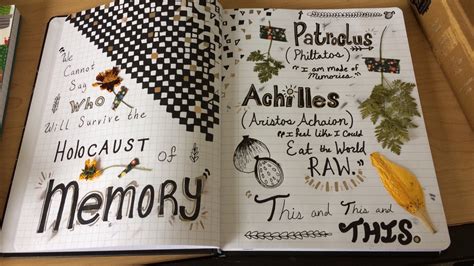 "We
Cannot
Say
Who
Will Survive the
HOLOCAUST of
MEMORY"
Patroclus
(Philtatos)
"I am made of
Memories."
Achilles
(Aristos Achaion)
"I Feel Like I Could
Eat the World
RAW."
"This and This and
THIS."